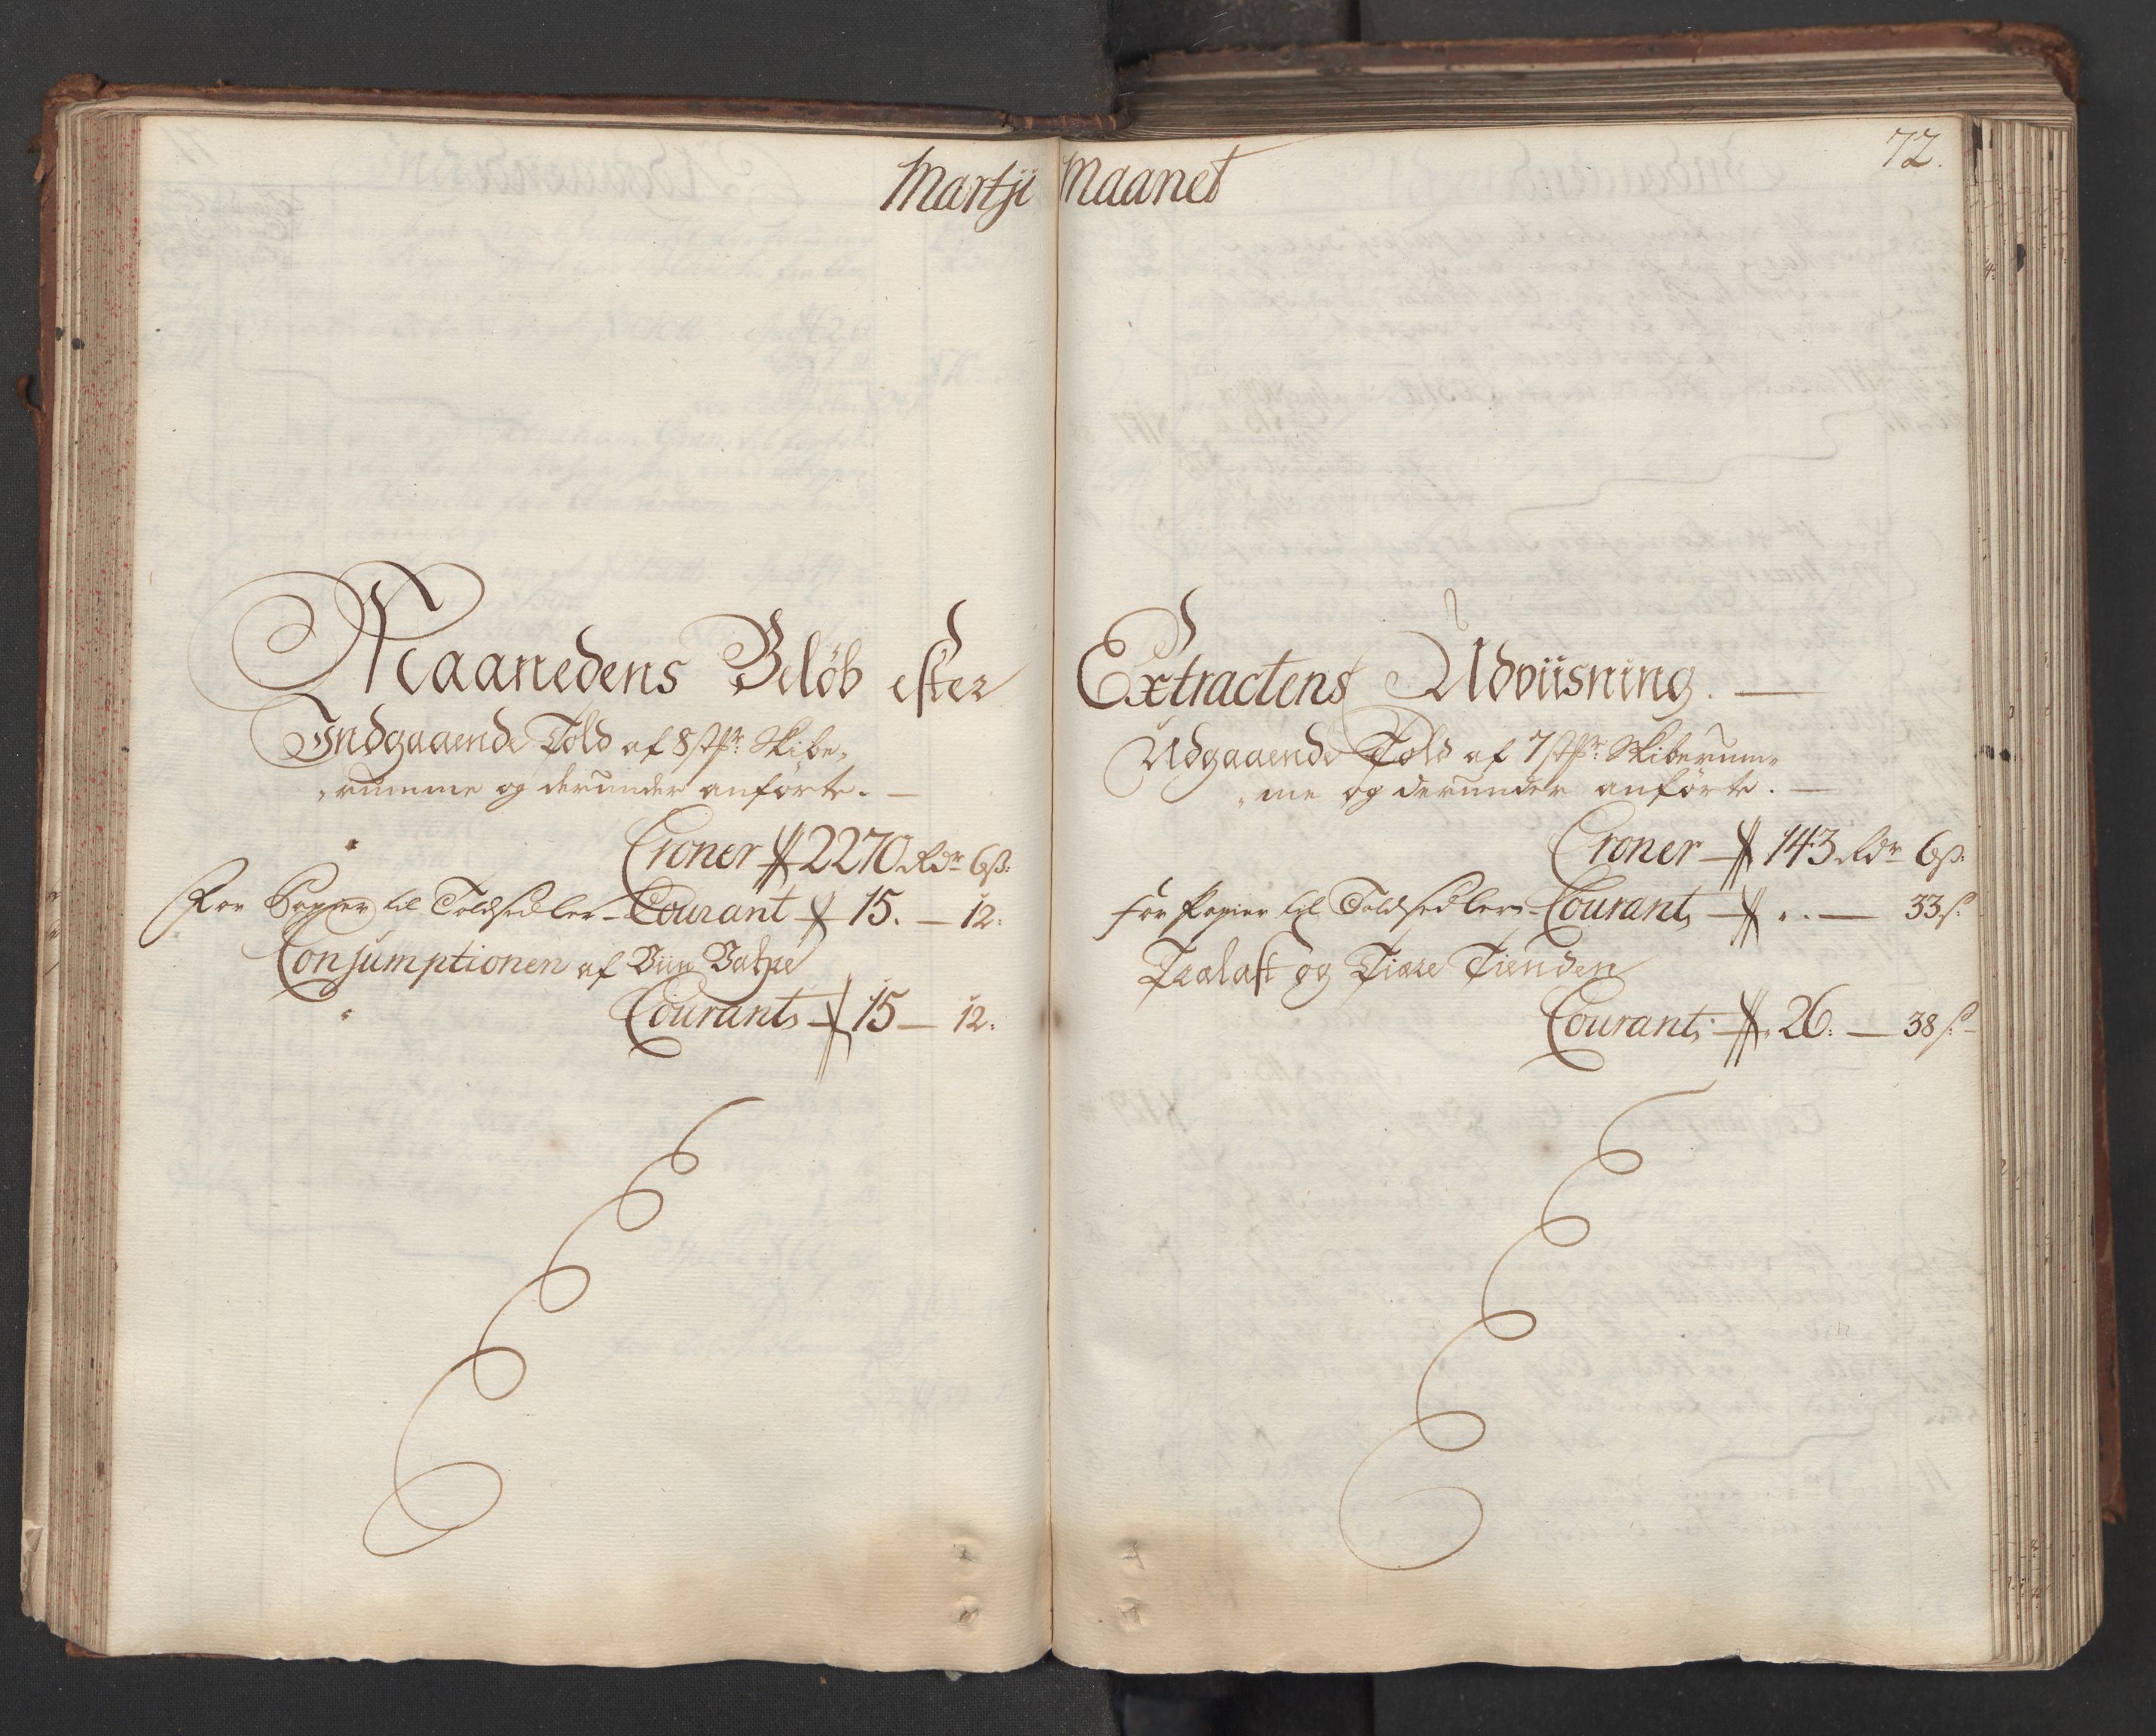 Martji Maanet
72.
Maanedens Beløb efter Extractens Udviisning.
Indgaaende Told af 8 st. Skibe-
-rumme og derunder anførte.
Croner 2270 Rdr 6 ß:
For Papier til Toldsedler - Courant 15. — 12:
Consumptionen af
Courant 15 — 12:
Udgaaende Told af 7 st. Skiberum-
-me og derunder anførte.
Croner 143 Rdr 6 ß:
for Papier til Toldsedler - Courant „. — 33 ß.
Trælast og Tiære Tienden
Courant 26: — 38 ß.